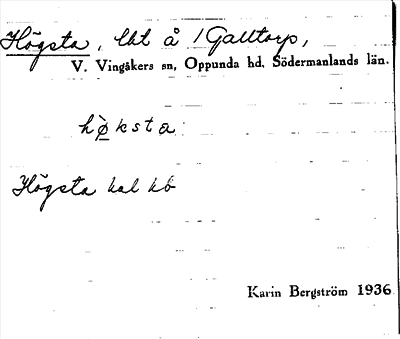 Högsta, lht å 1 Galltorp,
V. Vingåkers sn, Oppunda hd, Södermanlands län.
hø̀ksta
Högsta hal kö
Karin Bergström 1936